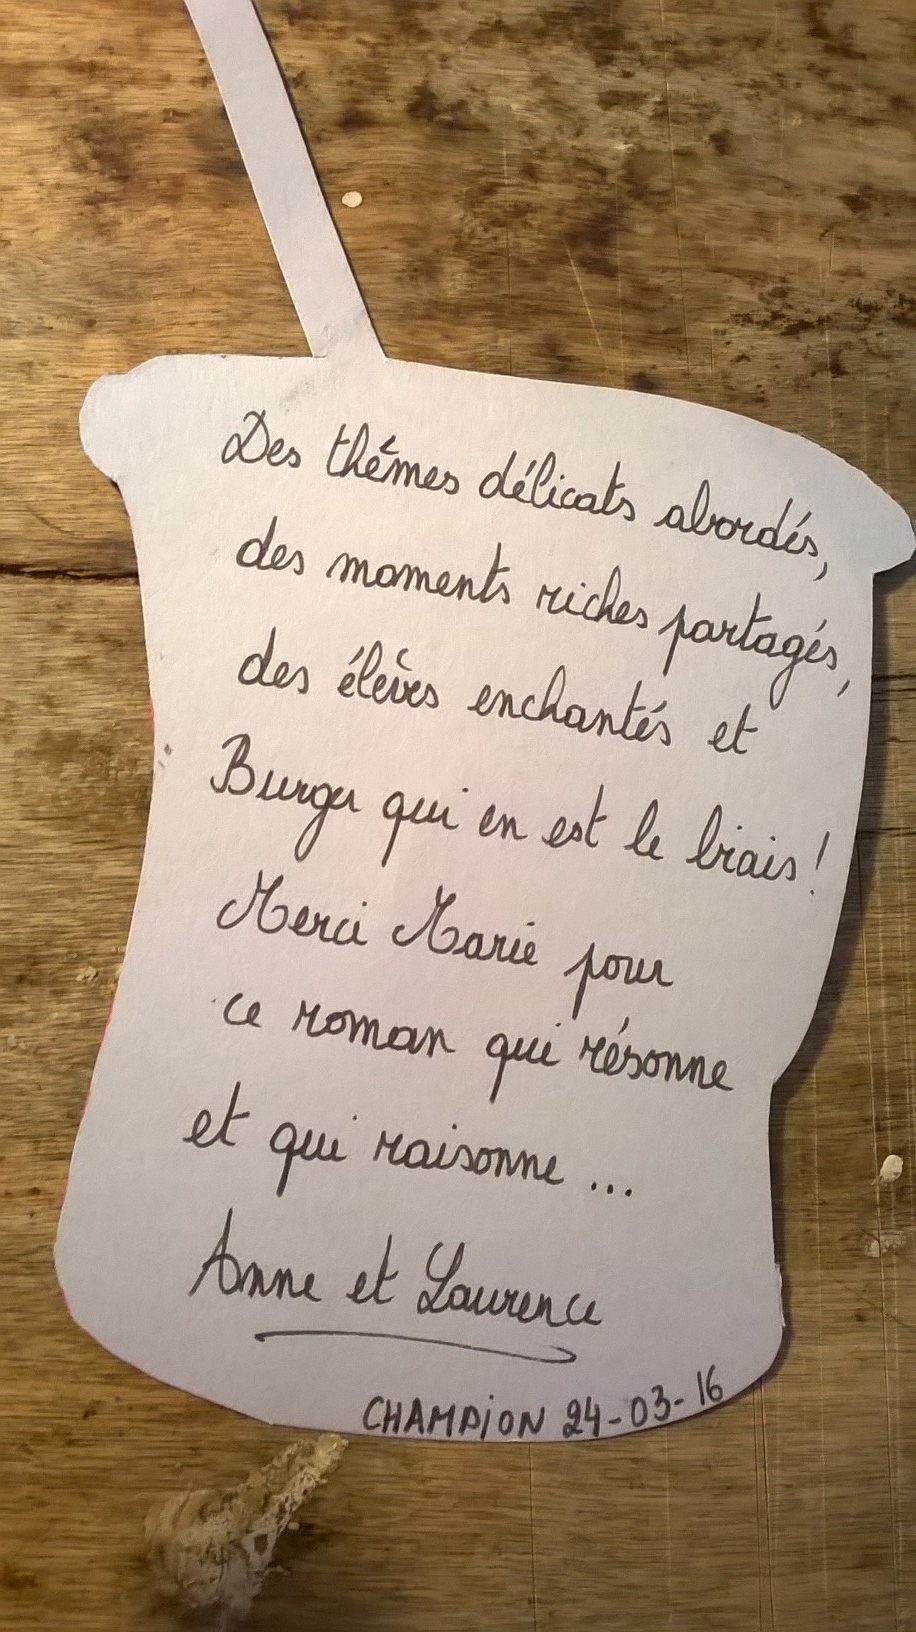 Des thêmes délicats abordés,
des moments riches partagés,
des élèves enchantés et
Burger qui en est le biais !
Merci Marie pour
ce roman qui résonne
et qui raisonne ...
Anne et Laurence
CHAMPION 24-03-16